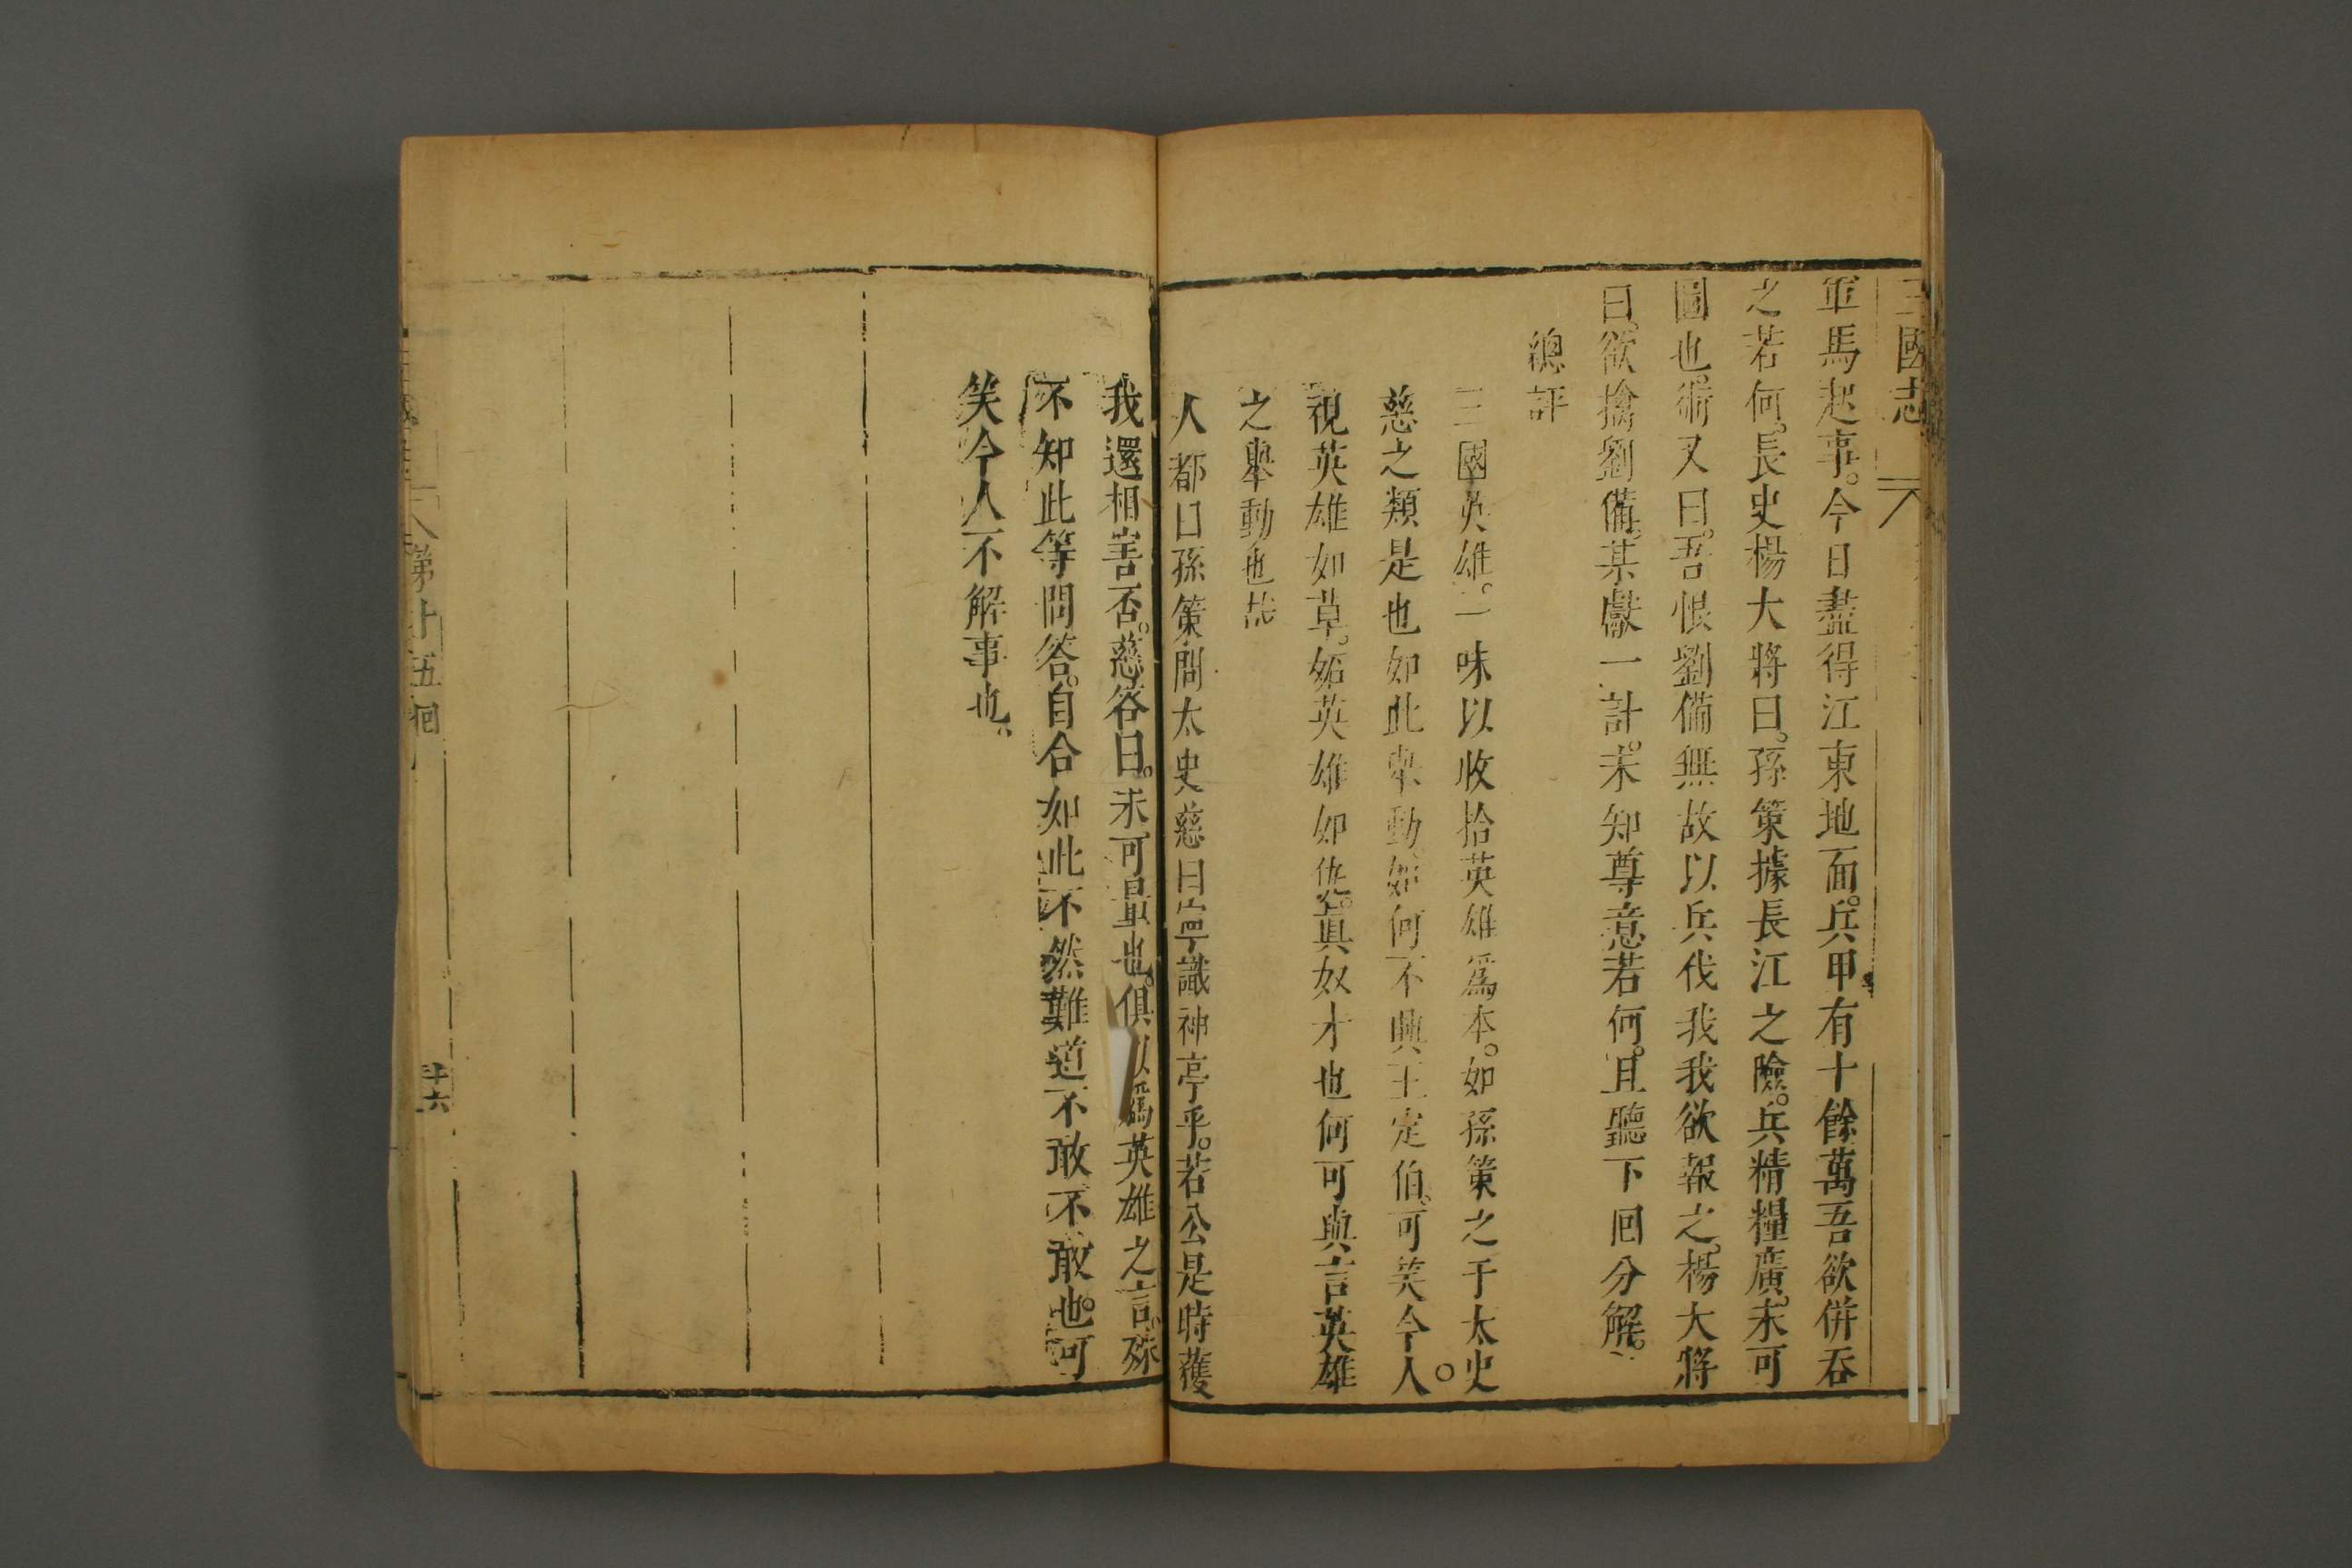 三國志
軍馬起事。今日盡得江東地面。兵甲有十餘萬吾欲併吞
之若何。長史楊大將曰。孫策據長江之險。兵精糧廣。未可
圖也。術又曰。吾恨劉備無故以兵伐我我欲報之。楊大將
曰。欲擒劉備。某獻一計。未知尊意若何。且聽下囘分解。
總評
三國英雄。一味以收拾英雄爲本。如孫策之于太史
慈之類是也如此舉動。如何不興王定伯。可笑今人。
視英雄如草。妬英雄如仇。眞奴才也何可與言英雄
之舉動也哉
人都曰孫策問太史慈曰寧識神亭乎。若公是時獲
我還相害否。慈答曰。未可量也。俱以爲英雄之言。殊
不知此等問答。自合如此不然難道不敢不敢也。可
笑今人不解事也。
第十五囘
十六